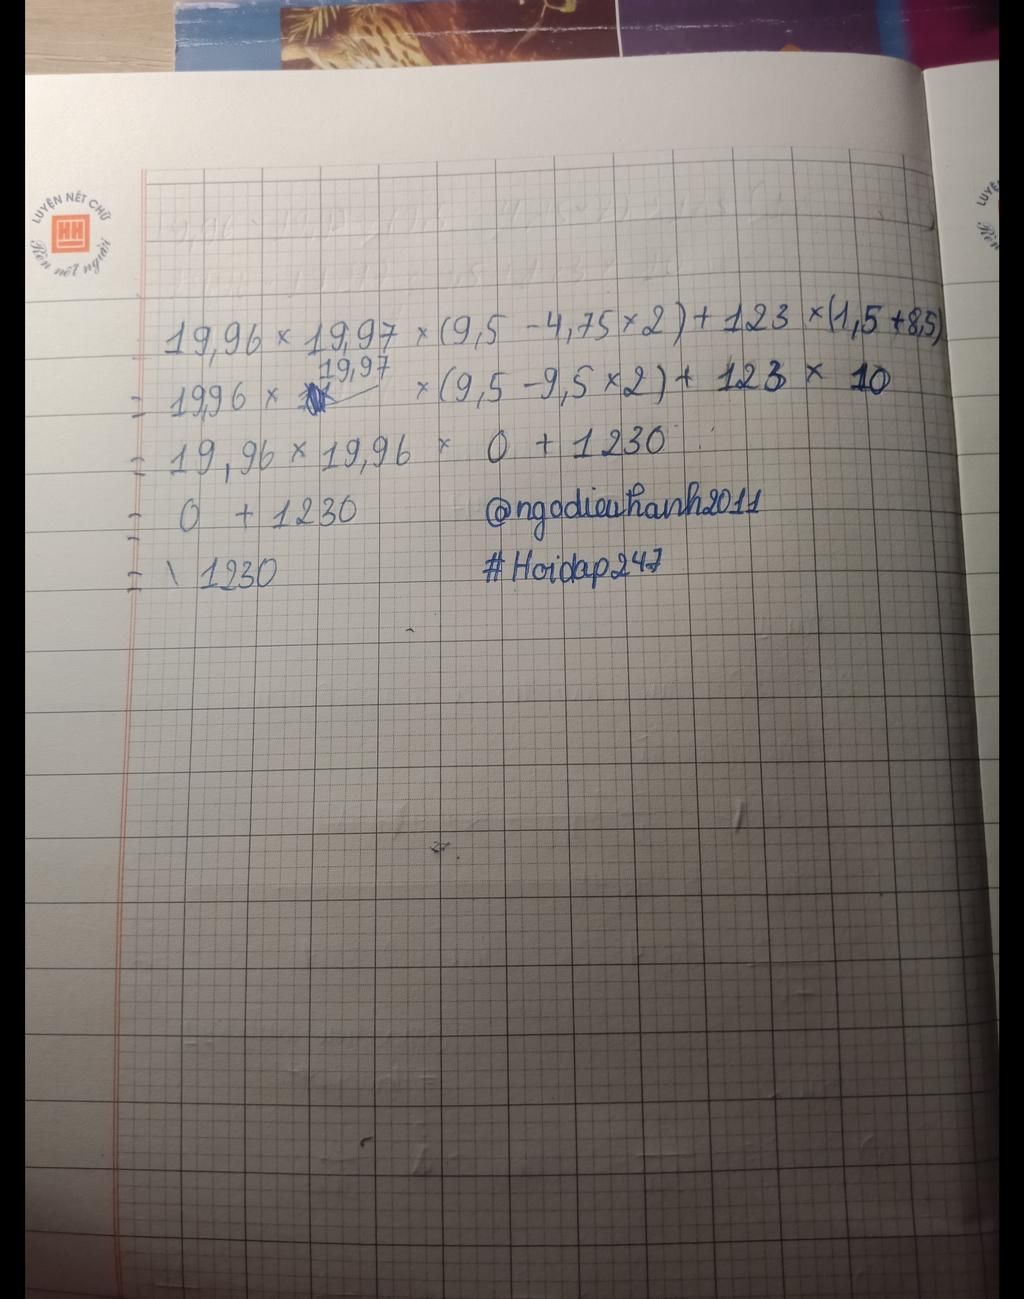 LUYỆN NÉT CHỮ
HH
Rèn nết người
19,96 × 19,97 × (9,5 - 4,75 × 2) + 123 × (1,5 + 8,5)
= 19,96 × 19,97 × (9,5 - 9,5 × 2) + 123 × 10
= 19,96 × 19,96 × 0 + 1230
= 0 + 1230 @ngodieuhanh2011
= 1230 #Hoidap247
LUYỆ
Rèn